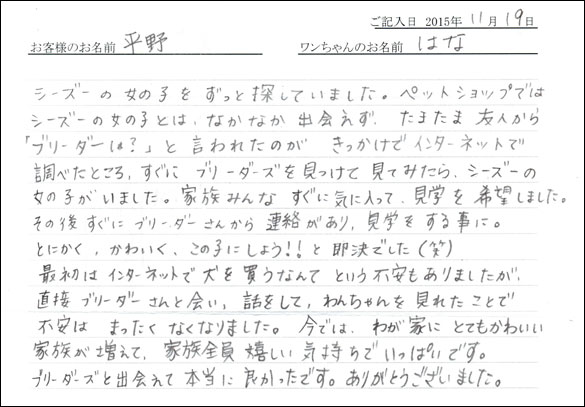 ご記入日 2015年 11月 19日
お客様のお名前 平野 ワンちゃんのお名前 はな
シーズーの女の子をずっと探していました。ペットショップでは
シーズーの女の子とは、なかなか出会えず、たまたま友人から
「ブリーダーは？」と言われたのがきっかけでインターネットで
調べたところ、すぐにブリーダーズを見つけて見てみたら、シーズーの
女の子がいました。家族みんなすぐに気に入って、見学を希望しました。
その後すぐにブリーダーさんから連絡があり、見学をする事に。
とにかく、かわいく、この子にしよう!!と即決でした(笑)
最初はインターネットで犬を買うなんてという不安もありましたが、
直接ブリーダーさんと会い、話をして、わんちゃんを見れたことで
不安はまったくなくなりました。今では、わが家にとてもかわいい
家族が増えて、家族全員嬉しい気持ちでいっぱいです。
ブリーダーズと出会えて本当に良かったです。ありがとうございました。